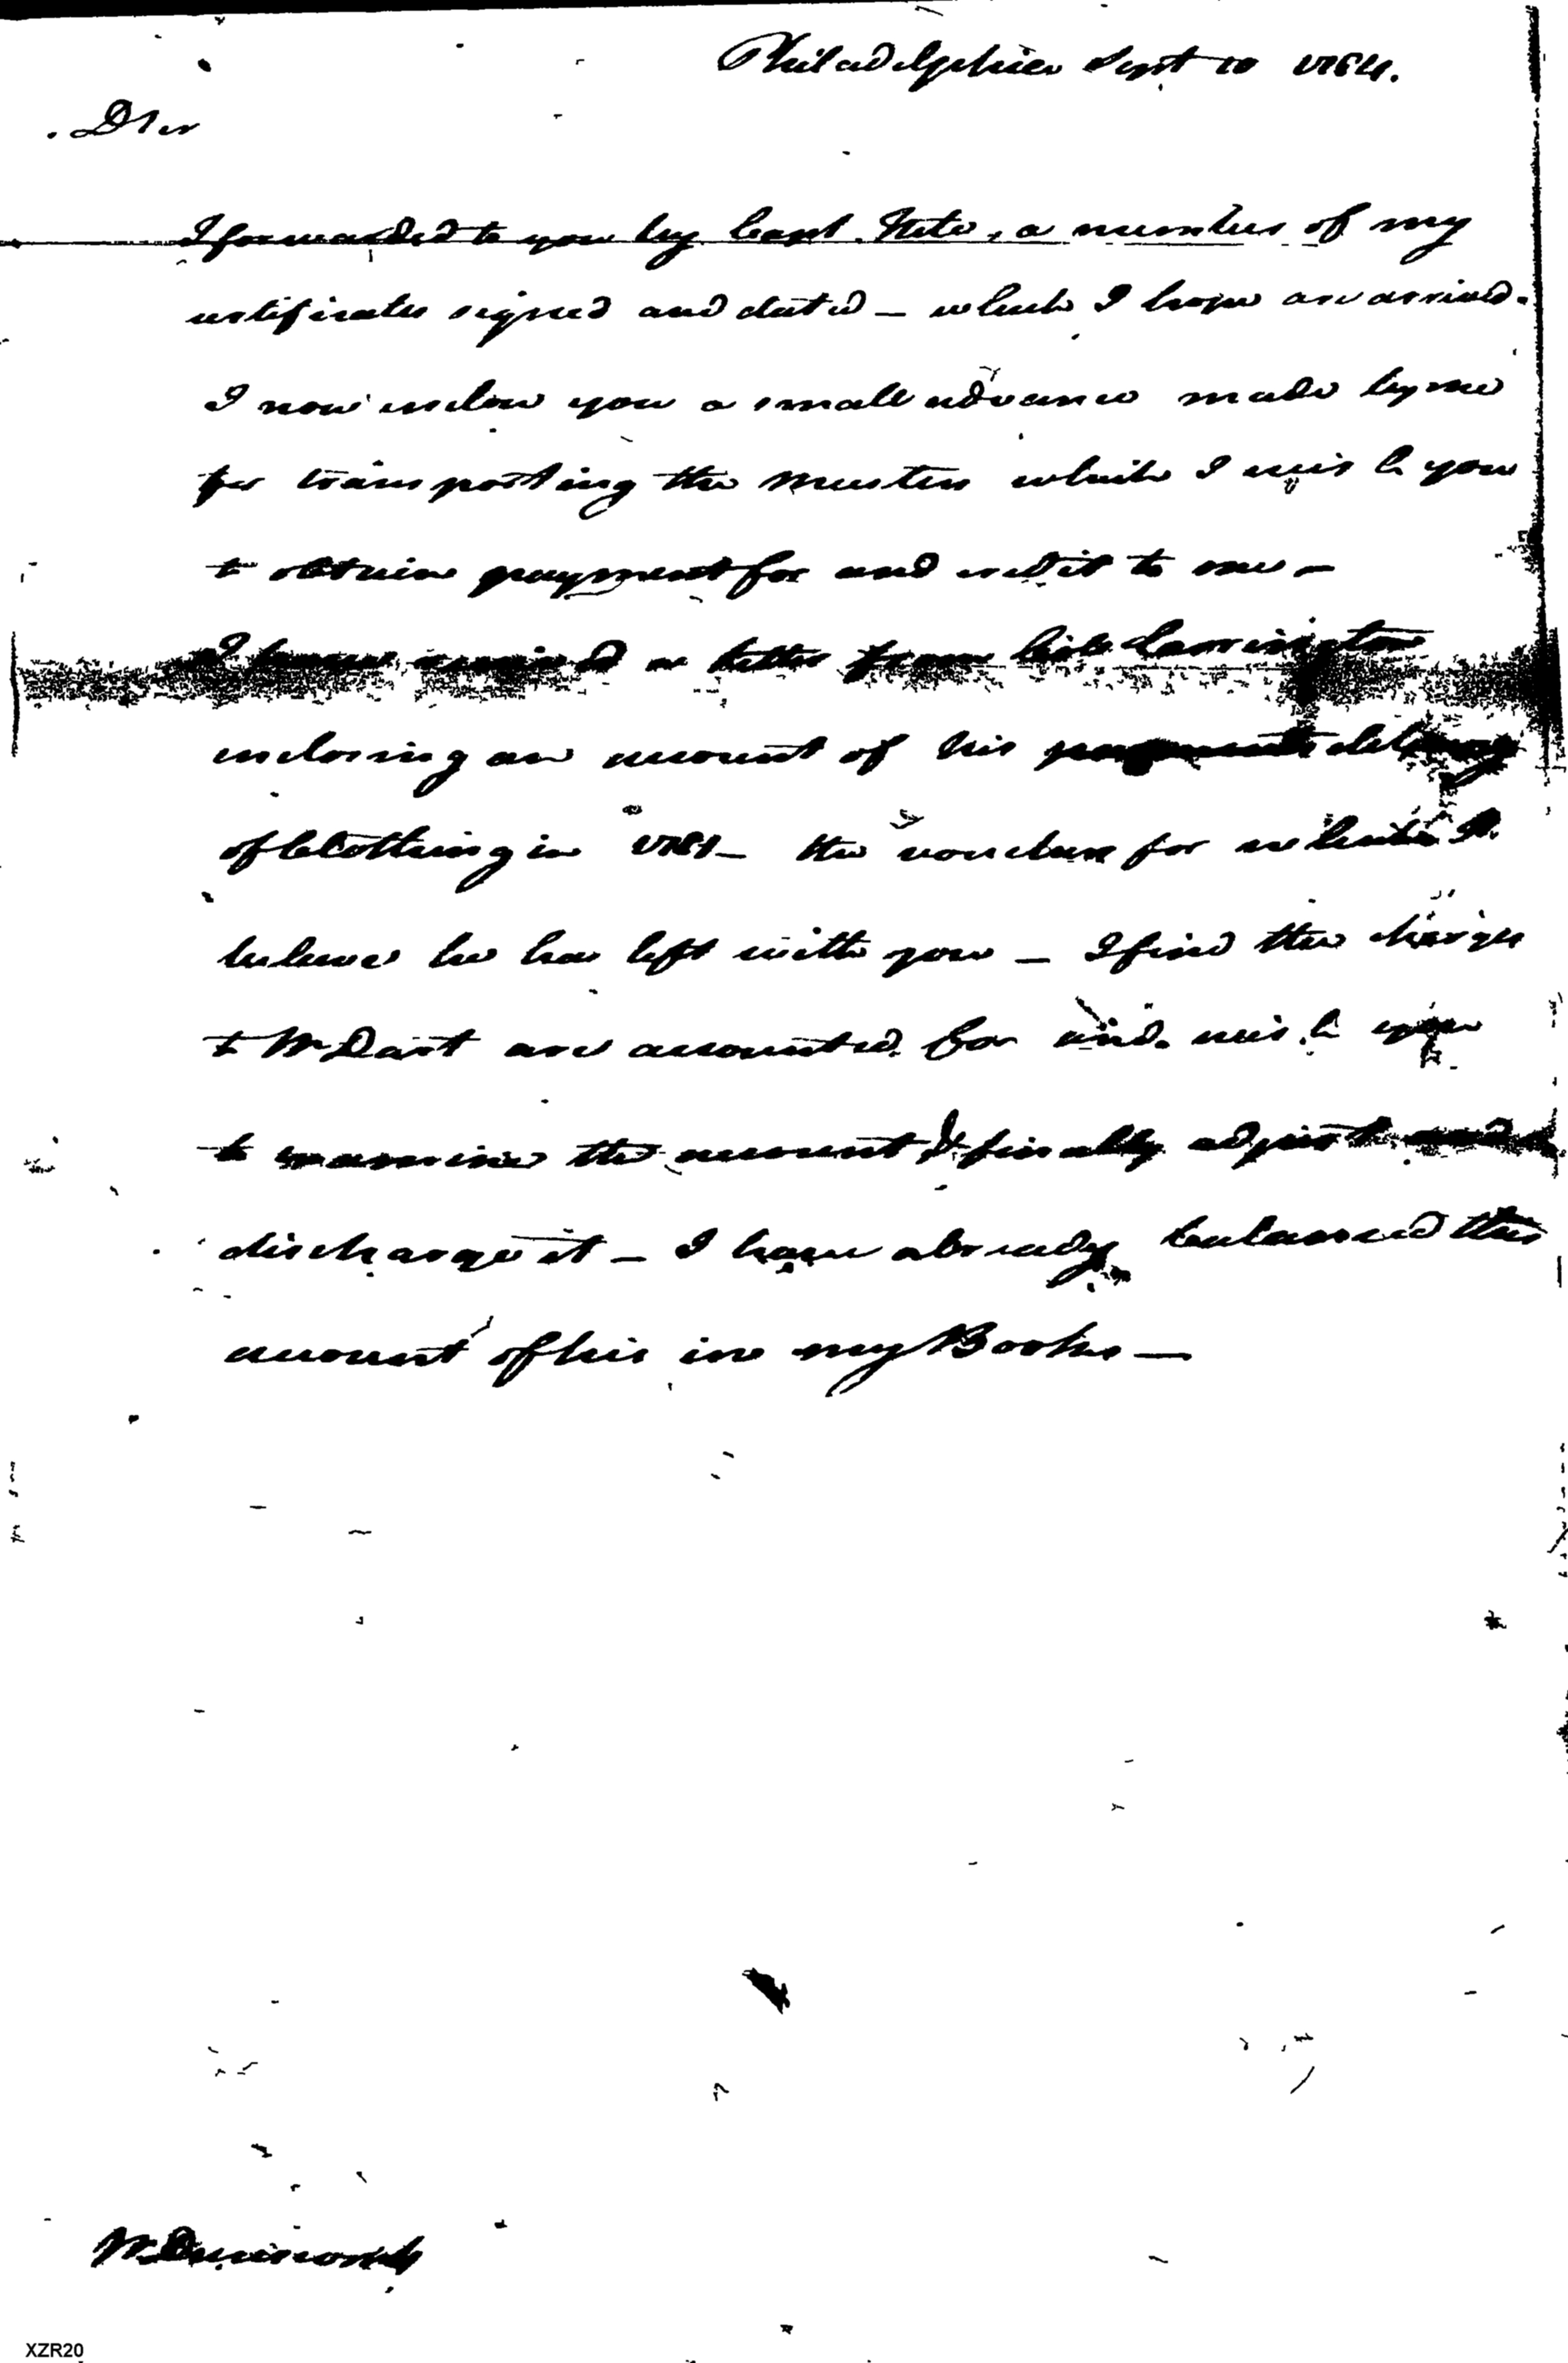 Philadelphia Sept 10 1784.
D Sir
I forwarded to you by Capt. a number of my
certificates signed and dated — which I hope are arrived.
I now inclose you a small advance made by me
for transporting the which I wish you
to obtain payment for and credit to me —
I have received a letter from Col. Carrington
inclosing an account of his payments delivery
of Clothing in 1781 — the vouchers for which I
believe he has left with you — I find the charges
to Mr Dart are accounted for and wish you
to examine the account & finally adjust and
discharge it — I have already balanced this
account of his in my Books —
Mr
XZR20